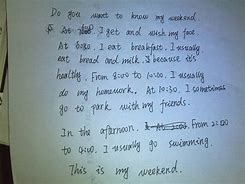 Do you want to know my weekend.
I get and wish my face.
At 6:30. I eat breakfast. I usually
eat bread and milk. Because it's
healthy. From 9:00 to 10:00, I usually
do my homework. At 10:30, I sometimes
go to park with my friends.
In the afternoon. From 2:00
to 4:00. I usually go swimming.
This is my weekend.